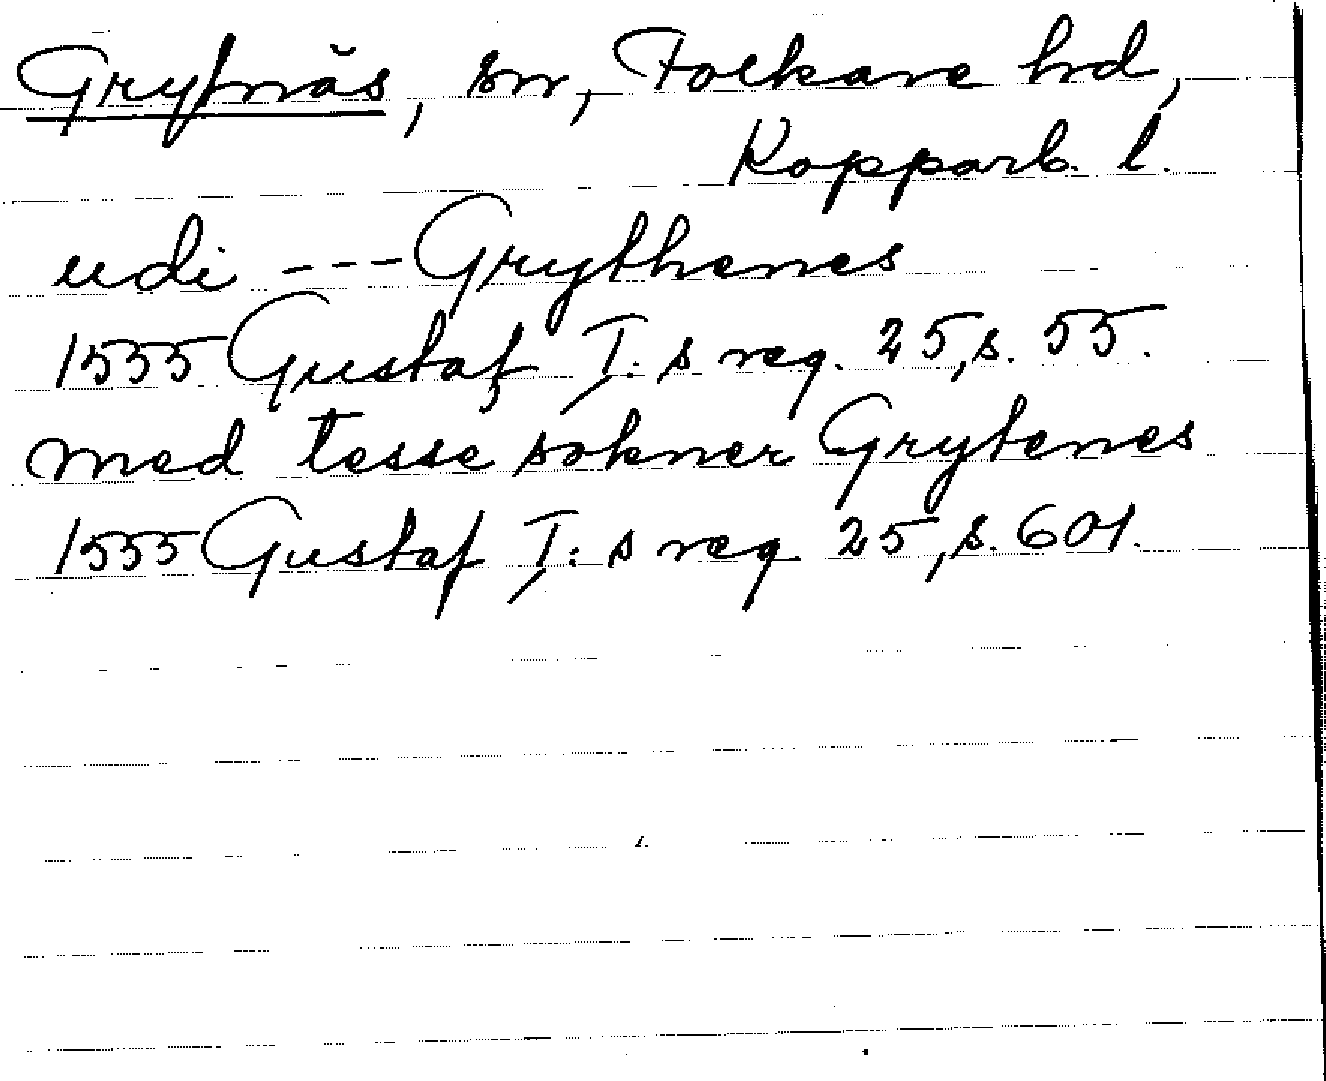 Grytnäs, sn, Folkare hd,
Kopparb. l.
udi --- Grythenes
1555 Gustaf I: s reg. 25, s. 55.
med tesse sokner Grytenes
1555 Gustaf I: s reg 25, s. 601.